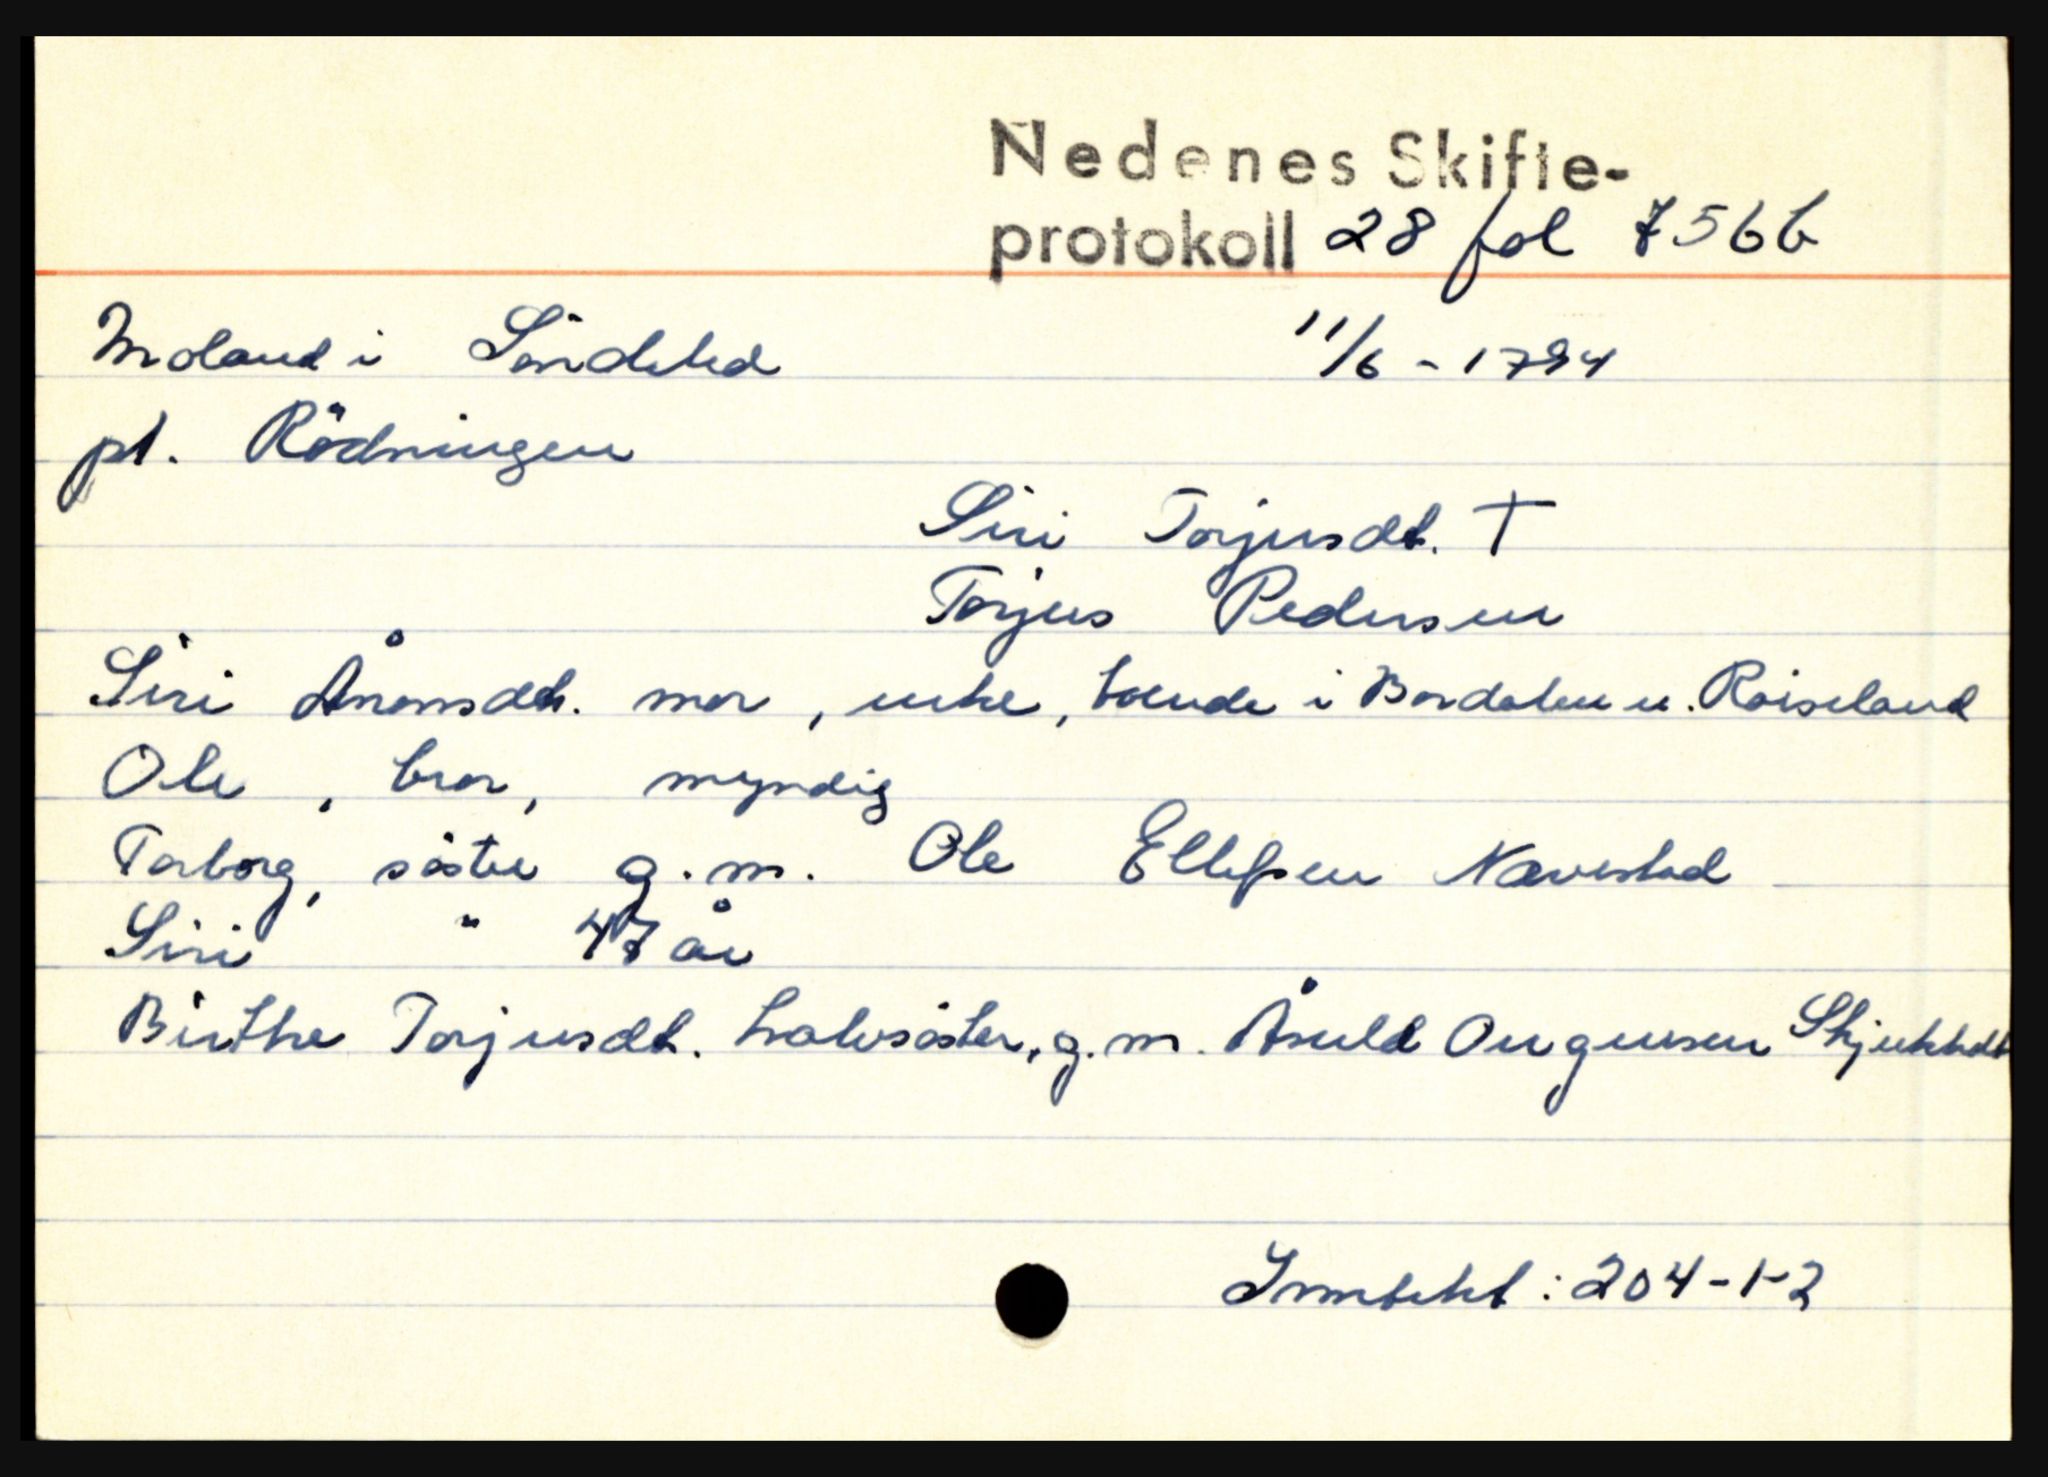 Nedenes Skifte-
protokoll 28 fol 756b
Moland i Söndeled 11/6 - 1794
pl. Rödningen
Siri Torjusdt. †
Torjus Pedersen
Siri Ånonsdt. mor, enke, boende i Bordalen u. Roiseland
Ole, bror, myndig
Torborg, söster g. m. Ole Ellefsen Navestad
Siri " 47 år
Birthe Torjusdt. halvsöster, g. m. Åsuld Ougensen
Inntekt : 204-1-2